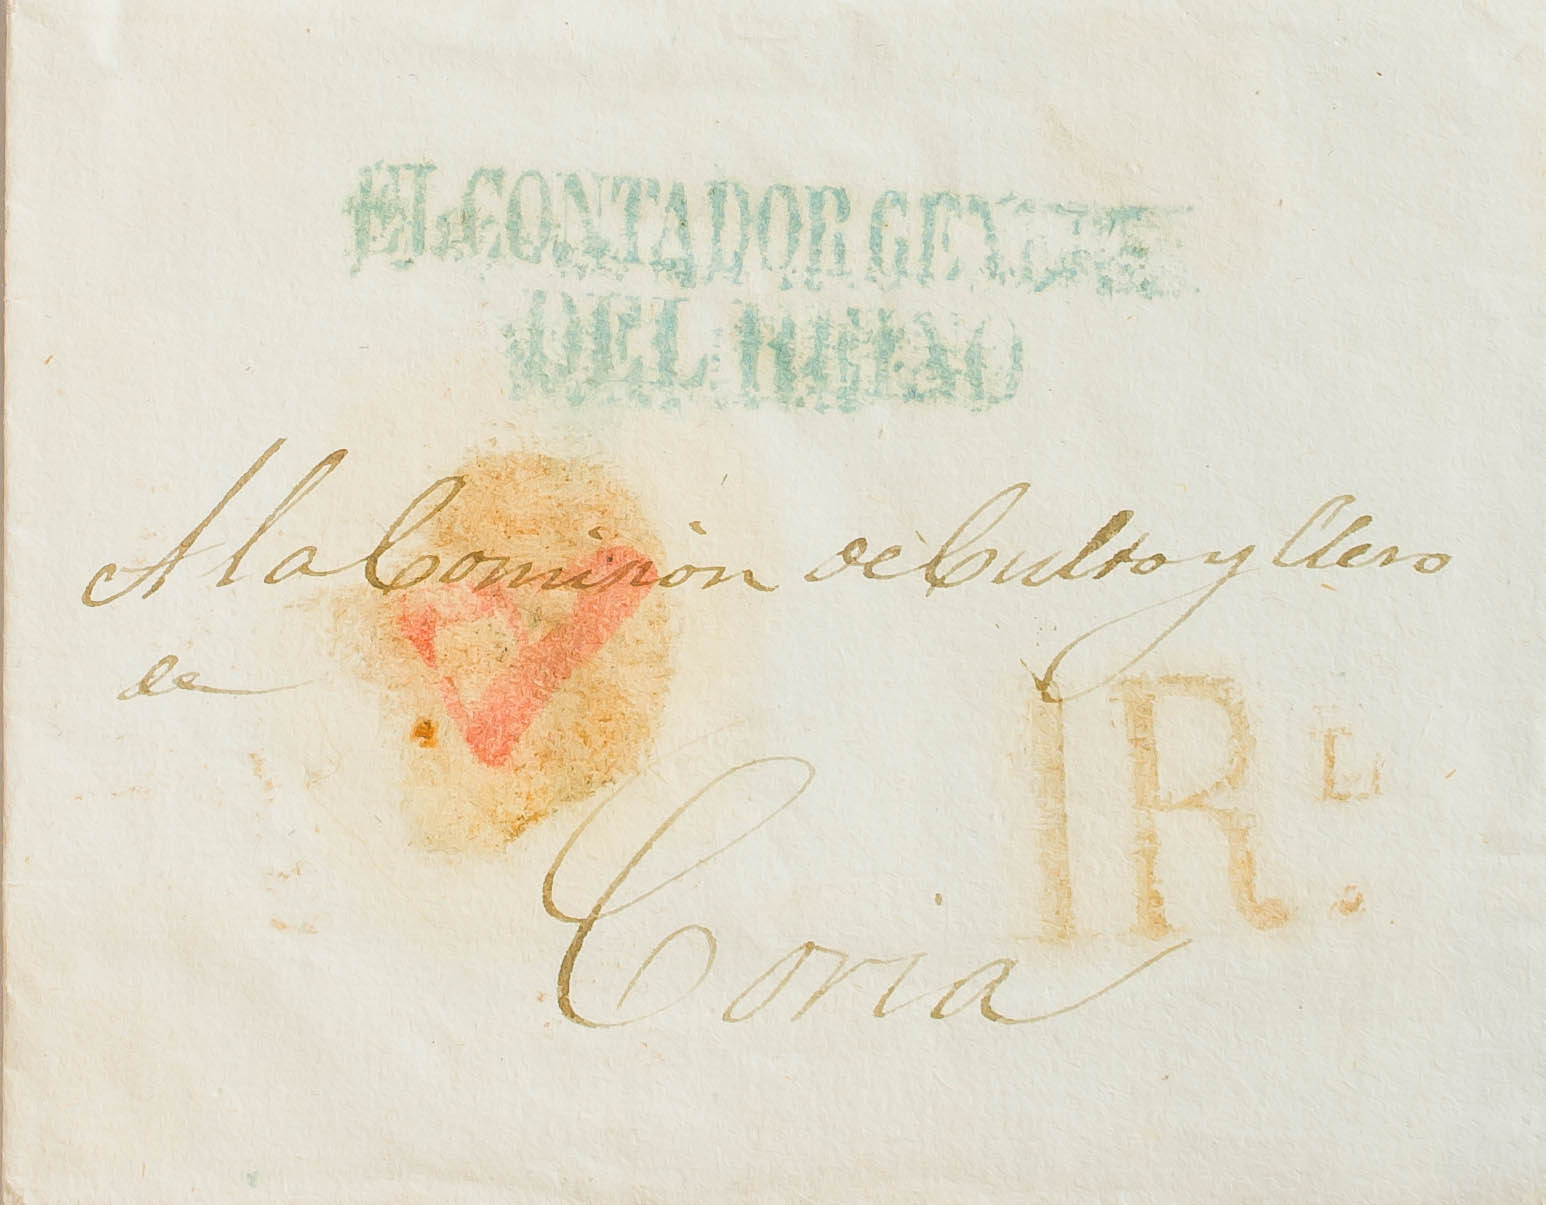 EL CONTADOR GENERAL
DEL REINO
A la Comision de Culto y Clero
de
Coria
1 R.L